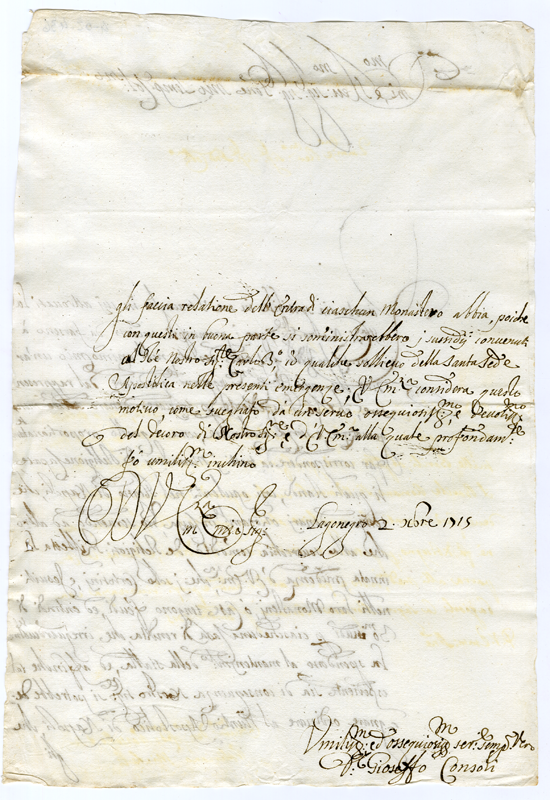 gli faccia relatione dell'entrade di ciaschun Monastero abbia, poiche
con questi in buona parte si somministrarebbero i sussidij convenuti
Nostro Sig.re Carlo 3.o, il quale sollievo della Santa Sede
Apostolica nelle presenti emergenze, V. Em.za considera questo
motivo come svegliato da un servo ossequiosiss.mo e devotiss.mo
del decoro di Nostro Sig.re e di V. Em.za alla quale profondam.te
fò umiliss.o inchino
Di V. Em.za
Em.mo mio Sig.re Lagonegro 2. 9bre 1715
Umiliss.mo ed ossequiosiss.mo ser.e sempre vero
Gioseffo Consoli